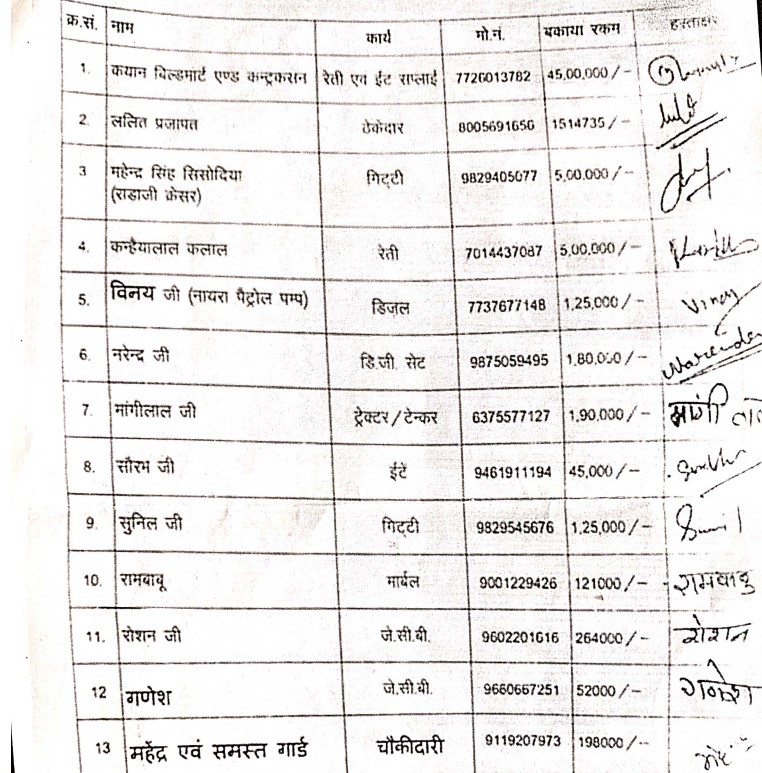 क्र.सं. नाम कार्य मो.नं. बकाया रकम हस्ताक्षर
1. कयान बिल्डमार्ट एण्ड कन्ट्रकसन रेती एवं ईट सप्लाई 7726013782 45,00,000/-
2. ललित प्रजापत ठेकेदार 8005691656 1514735/-
3 महेन्द्र सिंह सिसोदिया गिट्टी 9829405077 5,00,000/-
(राडाजी क्रेसर)
4. कन्हैयालाल कलाल रेती 7014437087 5,00,000/-
5. विनय जी (नायरा पैट्रोल पम्प) डिजल 7737677148 1,25,000/- Vinay
6. नरेन्द्र जी डि.जी. सेट 9875059495 1,80,000/- Narender
7. मांगीलाल जी ट्रेक्टर/टेन्कर 6375577127 1,90,000/-
8. सौरभ जी ईटें 9461911194 45,000/-
9. सुनिल जी गिट्टी 9829545676 1,25,000/- Sunil
10. रामबाबू मार्बल 9001229426 121000/- रामबाबु
11. रोशन जी जे.सी.बी. 9602201616 264000/- रोशन
12 गणेश जे.सी.बी. 9660667251 52000/- गणेश
13 महेंद्र एवं समस्त गार्ड चौकीदारी 9119207973 198000/-